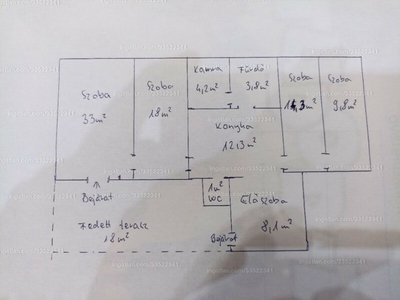 Szoba
33m²
Szoba
18m²
Kamra
4,2m²
Fürdő
3,8m²
Szoba
14,3m²
Szoba
9,8m²
Konyha
12,3m²
1m²
WC
Előszoba
8,1m²
Bejárat
Fedett terasz
18m²
Bejárat